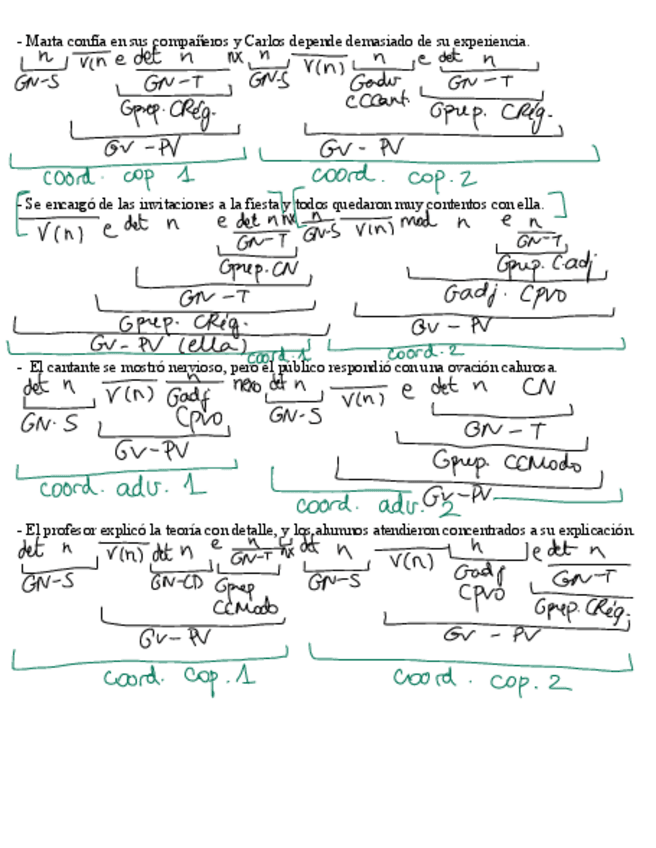 - Marta confía en sus compañeros y Carlos depende demasiado de su experiencia.
n V(n e det n nx n V(n) n e det n
GN-S GN-T GN-S Gadv GN-T
Gprep. CRég. CCCant. Gprep. CRég.
GV-PV GV-PV
coord. cop 1 coord. cop. 2
- Se encargó de las invitaciones a la fiesta y todos quedaron muy contentos con ella.
V(n) e det n e det n nx n V(n) mod n e n
GN-T GN-S GN-T
Gprep. CN Gprep. C.adj
GN-T Gadj. CPVO
Gprep. CRég. GV-PV
GV-PV (ella) coord. 1 coord. 2
- El cantante se mostró nervioso, pero el público respondió con una ovación calurosa.
det n V(n) n nexo det n V(n) e det n CN
GN-S Gadj GN-S GN-T
CPVO Gprep. CCModo
GV-PV GV-PV
coord. adv. 1 coord. adv. 2
- El profesor explicó la teoría con detalle, y los alumnos atendieron concentrados a su explicación.
det n V(n) det n e n nx det n V(n) n e det n
GN-S GN-CD GN-T GN-S Gadj GN-T
Gprep CPVO Gprep. CRég.
CCModo
GV-PV GV-PV
coord. cop. 1 coord. cop. 2